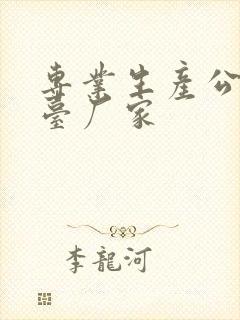 專業生產公
臺厂家
李龍河